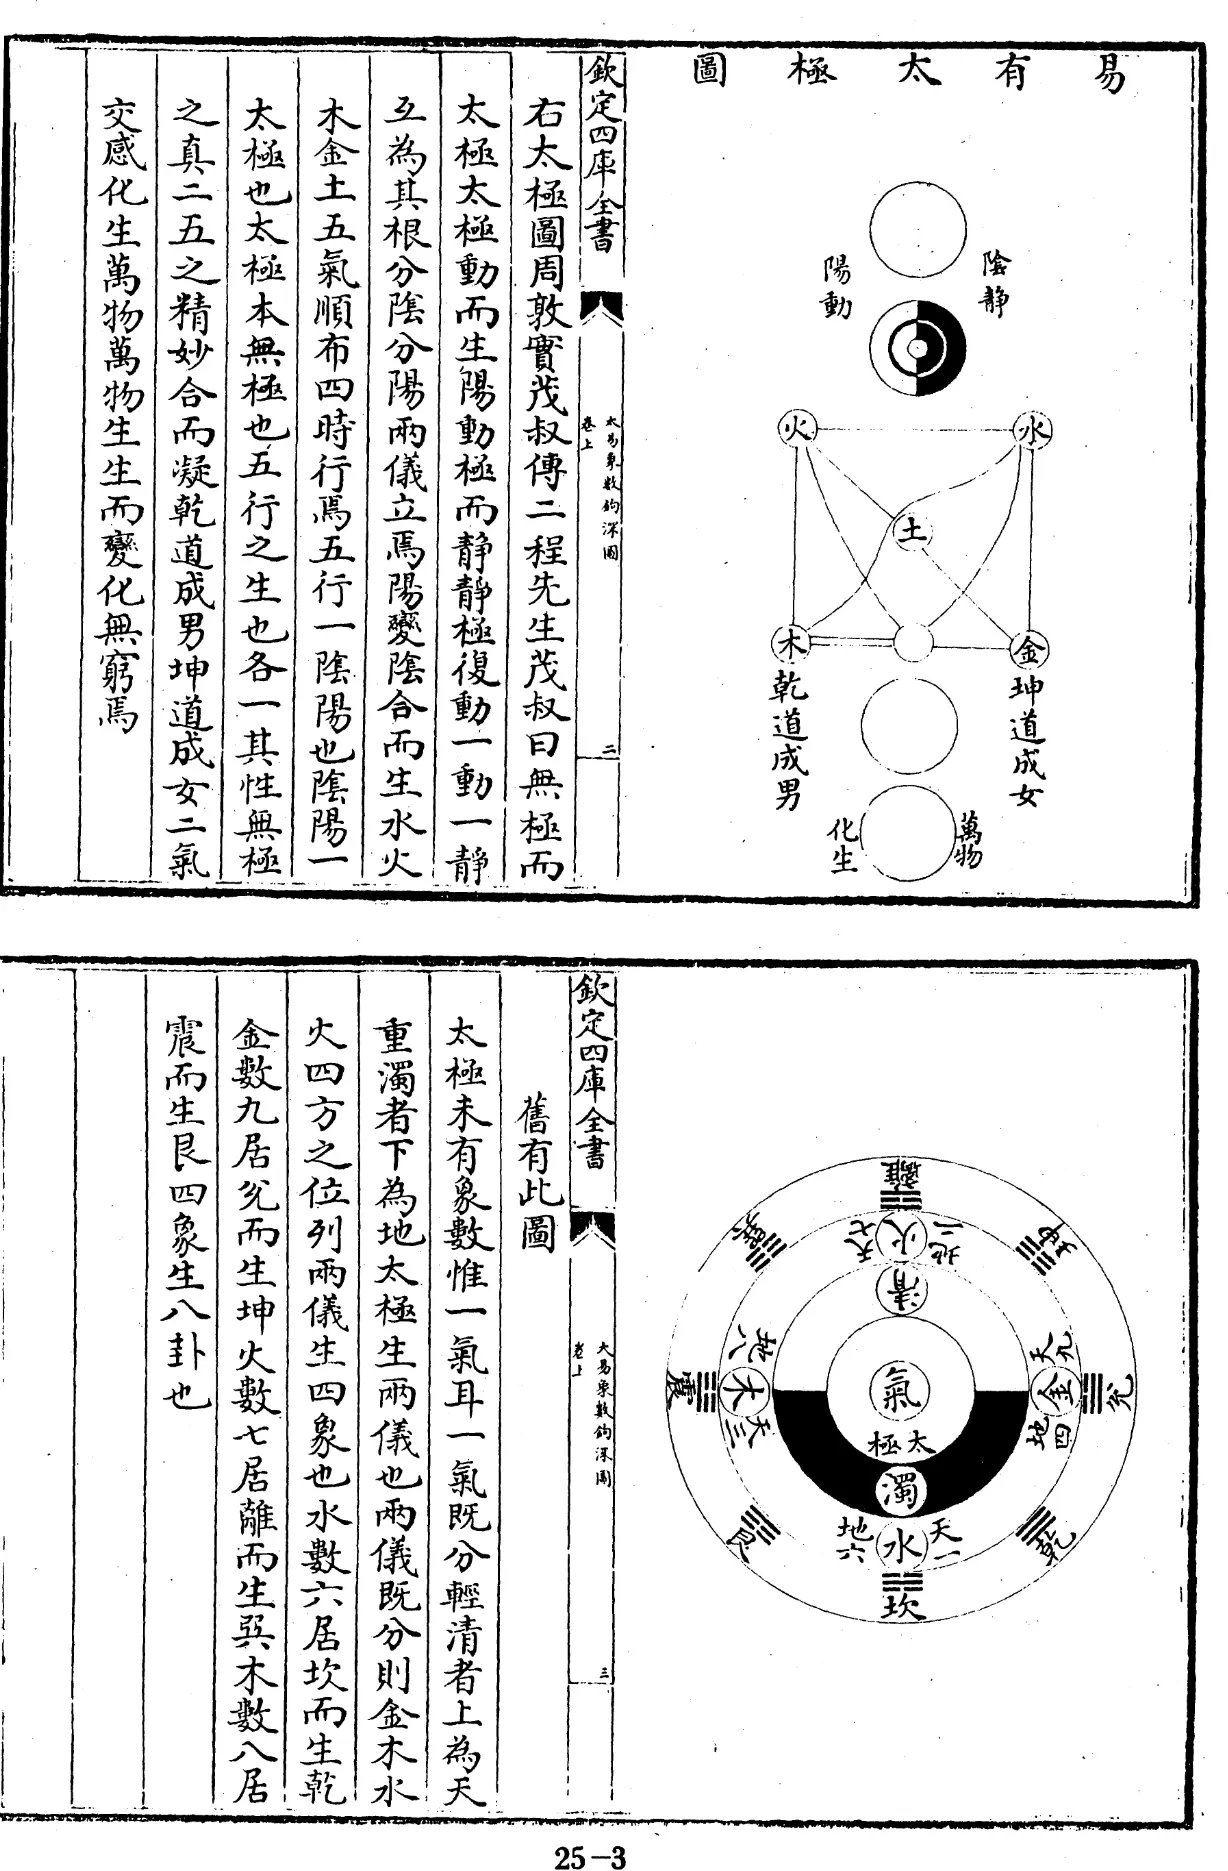 易有太極圖
陰静
陽動
水
火
土
金
木
坤道成女
乾道成男
萬物
化生
欽定四庫全書
大易象數鈎深圖
卷上
二
右太極圖周敦實茂叔傳二程先生茂叔曰無極而
太極太極動而生陽動極而静静極復動一動一静
互為其根分陰分陽兩儀立焉陽變陰合而生水火
木金土五氣順布四時行焉五行一陰陽也陰陽一
太極也太極本無極也五行之生也各一其性無極
之真二五之精妙合而凝乾道成男坤道成女二氣
交感化生萬物萬物生生而變化無窮焉
離
坤
兌
乾
坎
艮
震
巽
地二
火
天七
天九
金
地四
天一
水
地六
天三
木
地八
清
氣
太極
濁
欽定四庫全書
大易象數鈎深圖
卷上
三
舊有此圖
太極未有象數惟一氣耳一氣既分輕清者上為天
重濁者下為地太極生兩儀也兩儀既分則金木水
火四方之位列兩儀生四象也水數六居坎而生乾
金數九居兌而生坤火數七居離而生巽木數八居
震而生艮四象生八卦也
25-3